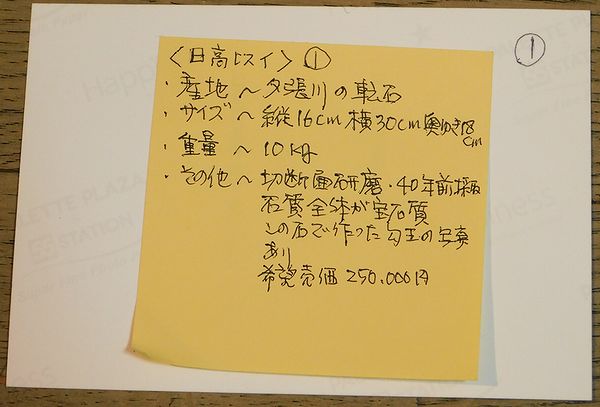 ①
〈日高ヒスイ〉①
・産地 〜 夕張川の転石
・サイズ 〜 縦16cm 横30cm 奥ゆき18cm
・重量 〜 10kg
・その他 〜 切断面研磨・40年前採石
石質全体が宝石質
この石で作った勾玉の写真
あり
希望売価 250.000円